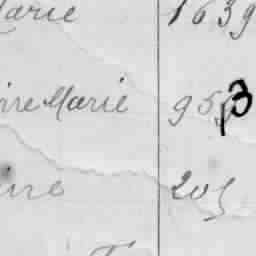 Marie 1639
ine Marie 953
ine 205